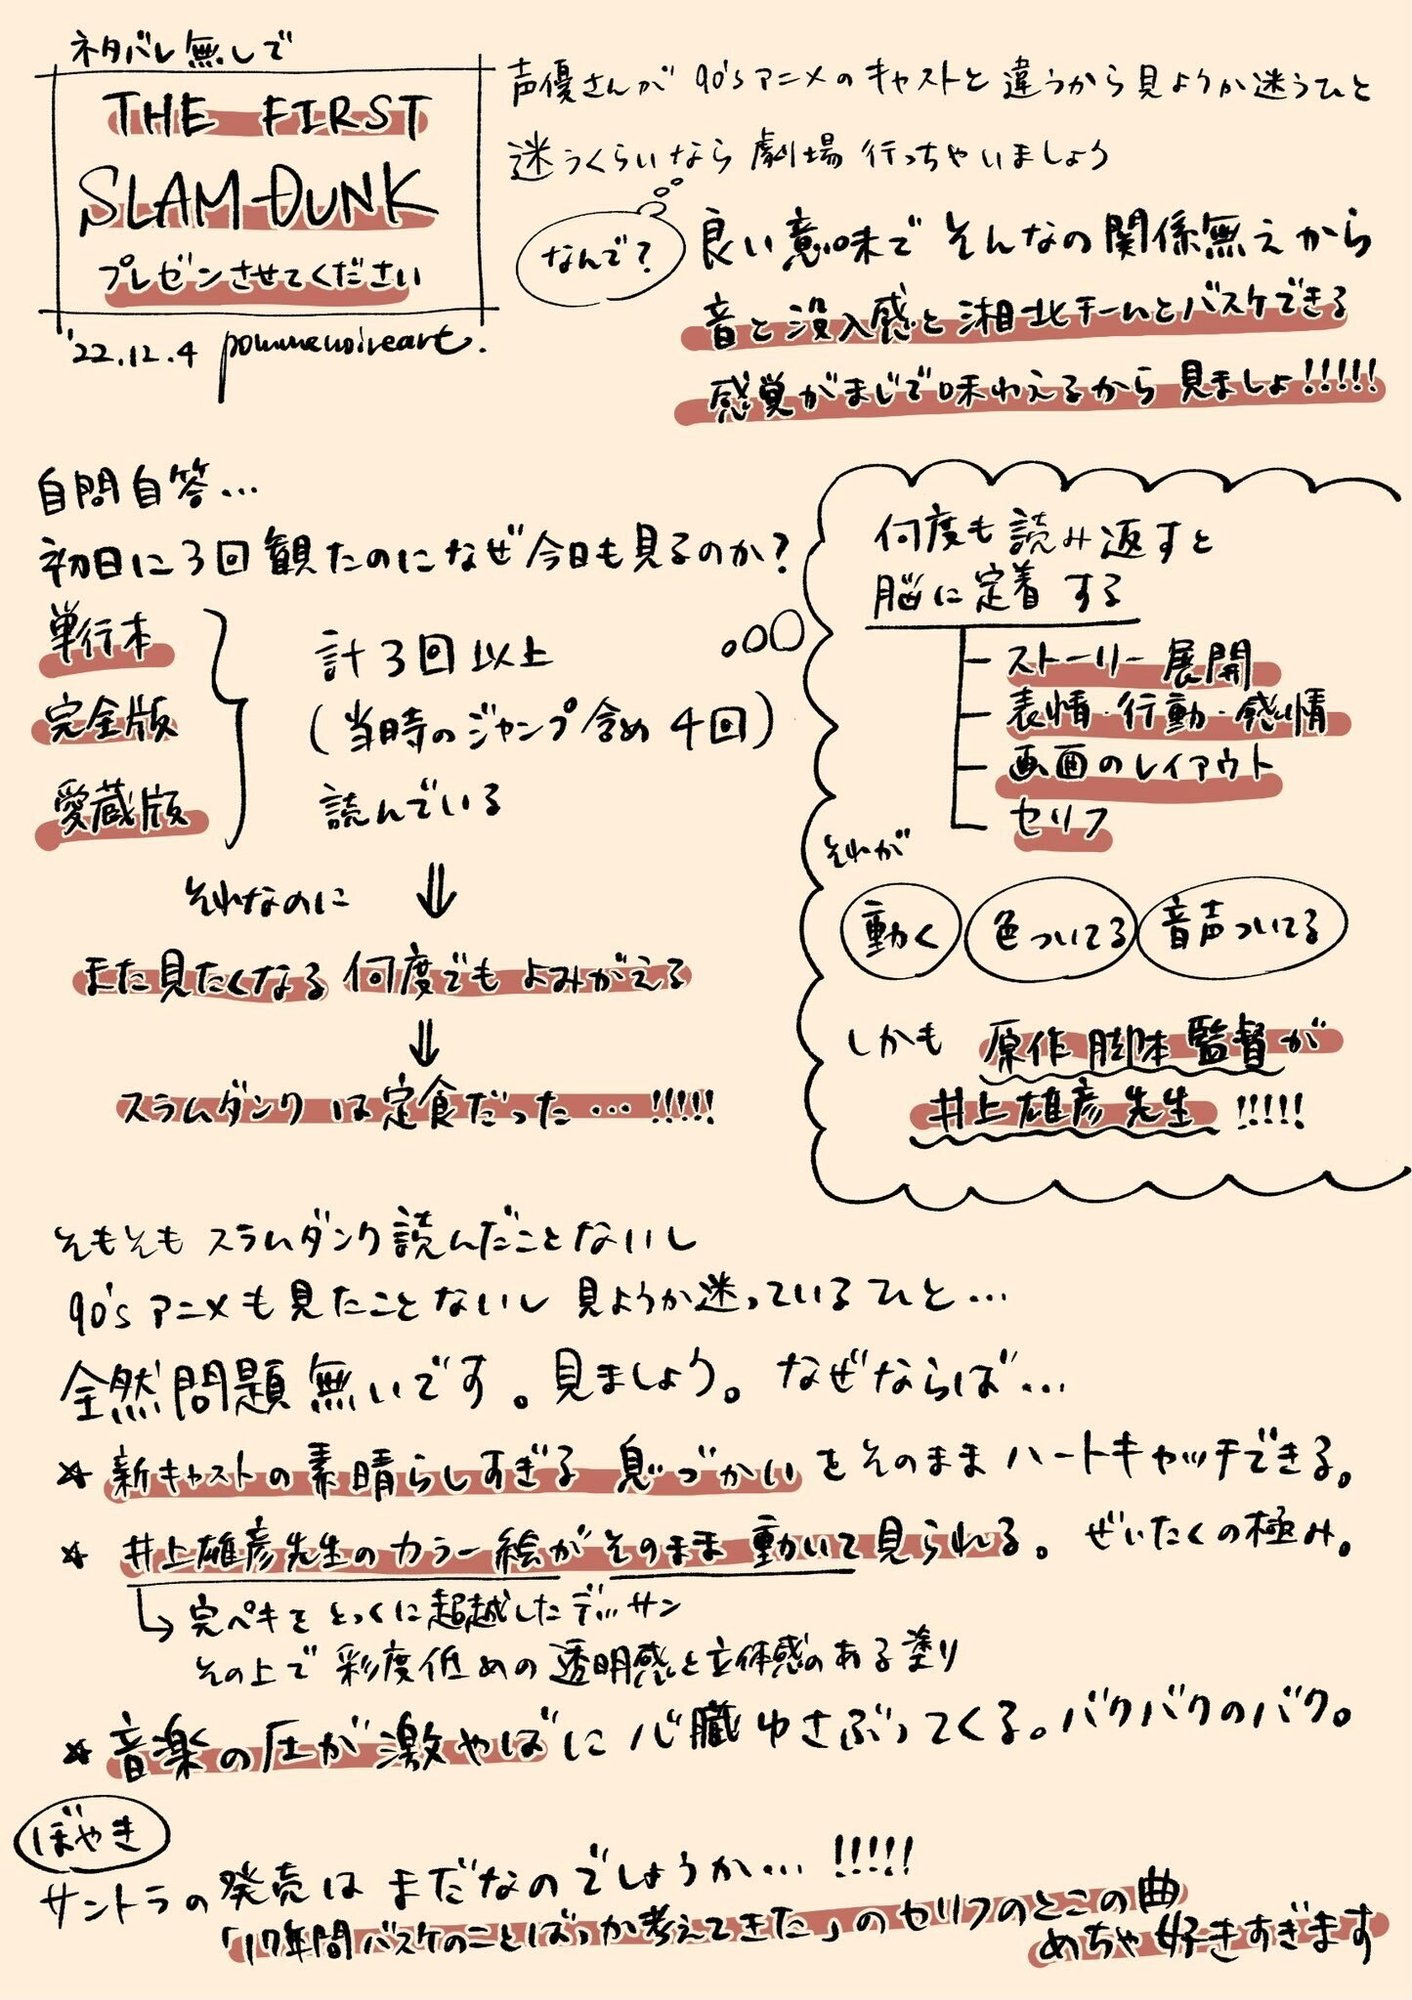 ネタバレ無しで
THE FIRST
SLAM DUNK
プレゼンさせてください
'22.12.4 pommenoireart.
声優さんが 90'sアニメのキャストと違うから見ようか迷うひと
迷うくらいなら劇場行っちゃいましょう
なんで?
良い意味でそんなの関係無えから
音と没入感と湘北チームとバスケできる
感覚がまじで味わえるから見ましょ!!!!!
自問自答…
初日に3回観たのになぜ今日も見るのか?
単行本
完全版
愛蔵版
計3回以上
(当時のジャンプ含め4回)
読んでいる
それなのに
また見たくなる 何度でもよみがえる
スラムダンクは定食だった…!!!!!
何度も読み返すと
脳に定着する
ストーリー展開
表情・行動・感情
画面のレイアウト
セリフ
それが
動く 色ついてる 音声ついてる
しかも 原作 脚本 監督が
井上雄彦先生!!!!!
そもそもスラムダンク読んだことないし
90'sアニメも見たことないし 見ようか迷っているひと…
全然問題無いです。見ましょう。なぜならば…
☆新キャストの素晴らしすぎる息づかいをそのままハートキャッチできる。
☆井上雄彦先生のカラー絵がそのまま動いて見られる。ぜいたくの極み。
完ペキをとっくに超越したデッサン
その上で彩度低めの透明感と立体感のある塗り
☆音楽の圧が激やばに心臓ゆさぶってくる。バクバクのバク。
ぼやき
サントラの発売はまだなのでしょうか…!!!!!
「17年間バスケのことばっか考えてきた」のセリフのとこの曲
めちゃ好きすぎます